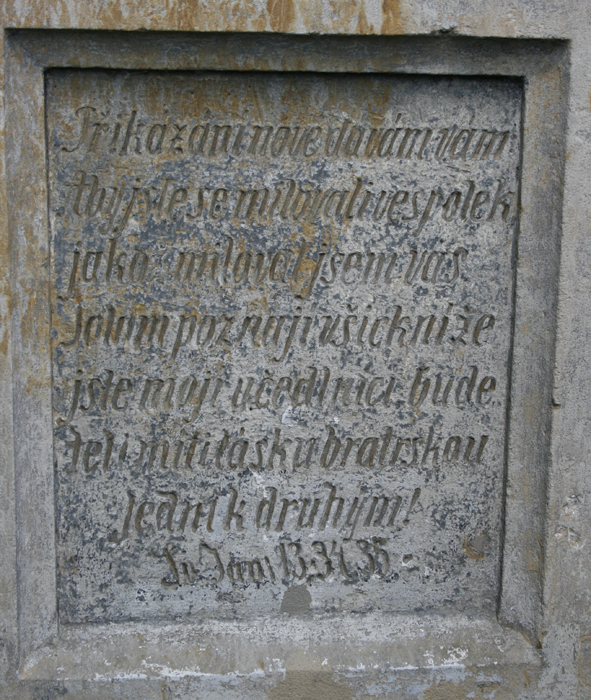 Přikázání nové dávám vám
Abyjste se milovali vespolek
jako milovaljsem vás.
Potom poznají všickniže
jste moji učedlníci bude
teli míti lásku bratrskou
Jedni k druhým!
Sv. Jana 13:34,35